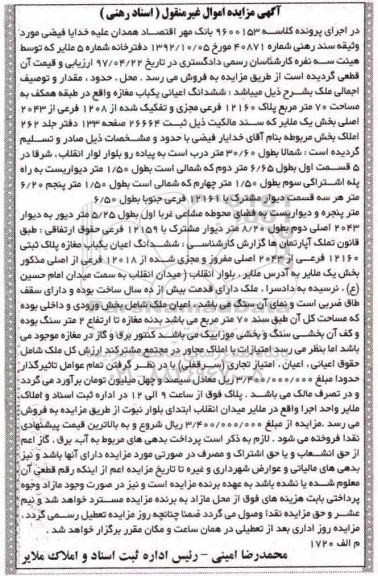 آگهی مزایده اموال غیرمنقول ( اسناد رهنی )
در اجرای پرونده کلاسه ۹۶۰۰۱۵۳ بانک مهر اقتصاد همدان علیه خدایا فیضی مورد
وثیقه سند رهنی شماره ۴۰۸۷۱ مورخ ۱۳۹۲/۱۰/۰۵ دفترخانه شماره ۵ ملایر که توسط
هیئت سه نفره کارشناسان رسمی دادگستری در تاریخ ۹۷/۰۴/۲۲ ارزیابی و قیمت آن
قطعی گردیده است از طریق مزایده به فروش می رسد . محل ، حدود ، مقدار و توصیف
اجمالی ملک بشرح ذیل میباشد : ششدانگ اعیانی یکباب مغازه واقع در طبقه همکف به
مساحت ۷۰ متر مربع پلاک ۱۲۱۶۰ فرعی مجزی و تفکیک شده از ۱۲۰۸ فرعی از ۲۰۴۳
اصلی بخش یک ملایر که سند مالکیت ذیل ثبت ۲۶۶۶۴ صفحه ۱۳۳ دفتر جلد ۲۶۲
املاک بخش مربوطه بنام آقای خدایار فیضی با حدود و مشخصات ذیل صادر و تسلیم
گردیده است : شمالا بطول ۳۰/۶۰ متر درب است به پیاده رو بلوار انقلاب ، شرقا در
۵ قسمت اول بطول ۶/۶۵ متر دوم که شمالی است بطول ۱/۵۰ متر دیواریست به راه
پله اشتراکی سوم بطول ۱/۵۰ متر چهارم که شمالی است بطول ۱/۵۰ متر پنجم ۶/۲۰
متر هر سه قسمت دیوار مشترک با ۱۲۱۶۱ فرعی جنوبا بطول ۶/۵۰
متر پنجره و دیواریست به فضای محوطه مشاعی غربا اول بطول ۵/۲۵ متر دیور به دیوار
۲۰۴۳ اصلی دوم بطول ۸/۲۰ متر دیوار مشترک با ۱۲۱۵۹ فرعی حقوق ارتفاقی : طبق
قانون تملک آپارتمان ها گزارش کارشناسی : ششدانگ اعیان یکباب مغازه پلاک ثبتی
۱۲۱۶۰ فرعی از ۲۰۴۳ اصلی مفروز و مجزی شده از ۱۲۰۱۸ فرعی از اصلی مذکور
بخش یک ملایر به آدرس ملایر ، بلوار انقلاب ( میدان انقلاب به سمت میدان امام حسین
(ع) ، نرسیده به دادسرا ، ملک دارای قدمت بیش از ده سال ساخت بوده و دارای سقف
طاق ضربی است و نمای آن سنگ می باشد ، اعیان ملک شامل بخش ورودی و داخلی بوده
که مساحت کل آن طبق سند ۷۰ متر مربع می باشد بدنه مغازه تا ارتفاع ۲ متر سنگ بوده
و کف آن بخشی سنگ و بخشی موزاییک می باشد کنتور برق و گاز در مغازه موجود می
باشد اما بنظر می رسد امتیازات با املاک مجاور در مجتمع مشترکند ارزش کل ملک شامل
حقوق اعیانی ، اعیان ، امتیاز تجاری (سرقفلی) با در نظر گرفتن تمام عوامل تاثیرگذار
حدودا مبلغ ۳/۴۰۰/۰۰۰/۰۰۰ ریال معادل سیصد و چهل میلیون تومان برآورد می گردد
و در تصرف مالک می باشد . پلاک فوق از ساعت ۹ الی ۱۲ در اداره ثبت اسناد و املاک
ملایر واحد اجرا واقع در ملایر میدان انقلاب ابتدای بلوار نبوت از طریق مزایده به فروش
می رسد .مزایده از مبلغ ۳/۴۰۰/۰۰۰/۰۰۰ ریال شروع و به بالاترین قیمت پیشنهادی
نقدا فروخته می شود . لازم به ذکر است پرداخت بدهی های مربوط به آب، برق، گاز اعم
از حق انشعاب و یا حق اشتراک و مصرف در صورتی مورد مزایده دارای آنها باشد و نیز
بدهی های مالیاتی و عوارض شهرداری و غیره تا تاریخ مزایده اعم از اینکه رقم قطعی آن
معلوم شده یا نشده باشد به عهده برنده مزایده است و نیز در صورت وجود مازاد وجوه
پرداختی بابت هزینه های فوق از محل مازاد به برنده مزایده مسترد خواهد شد و نیم
عشر و حق مزایده نقدا وصول می گردد ضمنا چنانچه روز مزایده تعطیل رسمی گردد،
مزایده روز اداری بعد از تعطیلی در همان ساعت و مکان مقرر برگزار خواهد شد .
م الف ۱۷۲۰
محمدرضا امینی - رئیس اداره ثبت اسناد و املاک ملایر